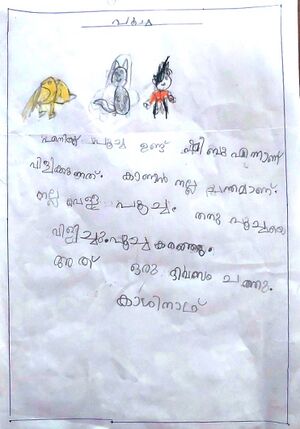 പൂച്ച
എനിക്ക് പൂച്ച ഉണ്ട് ചിമ്പു എന്നാണ്
വിളിക്കുന്നത്. കാണാൻ നല്ല ചന്തമാണ്.
നല്ല വെള്ള പൂച്ച. പൂച്ചയെ
വിളിച്ചു. പൂച്ച കരഞ്ഞു.
അത് ഒരു ദിവസം ചത്തു.
കാശിനാഥ്